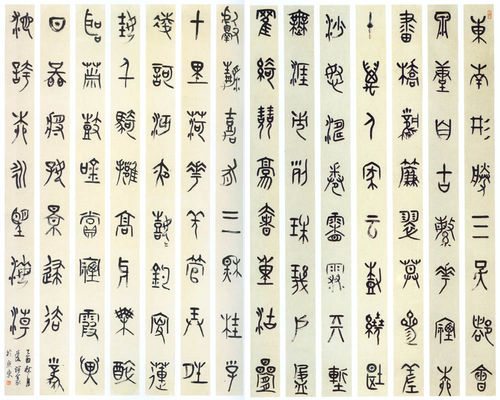 東南形勝三吳都會
錢塘自古繁華煙柳
畫橋風簾翠幕參差
十萬人家雲樹繞堤
沙怒濤卷霜雪天塹
無涯市列珠璣戶盈
羅綺競豪奢重湖疊
巘清嘉有三秋桂子
十里荷花羌管弄晴
菱歌泛夜嬉嬉釣叟蓮
娃千騎擁高牙乘醉
聽簫鼓吟賞煙霞異
日圖將好景歸去鳳
池誇柳永望海潮